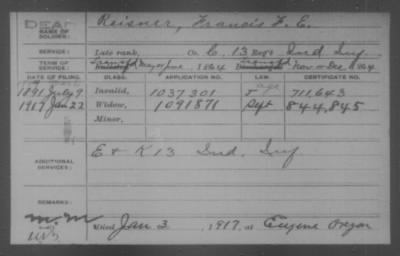 DEAD
NAME OF SOLDIER: Reisner, Francis F. E.
SERVICE: Late rank, Co. C, 13 Reg't Ind Inf
TERM OF SERVICE: Enlisted 1864 Discharged Nov or Dec 1864
DATE OF FILING. CLASS. APPLICATION NO. LAW. CERTIFICATE NO.
age
1891 July 9 Invalid, 1037301 J 711,643
1917 Jan 22 Widow, 1091871 Sept 844,845
Minor,
ADDITIONAL SERVICES: E & K 13 Ind. Inf.
REMARKS:
M.M
Died Jan 3 1917, at Eugene Oregon